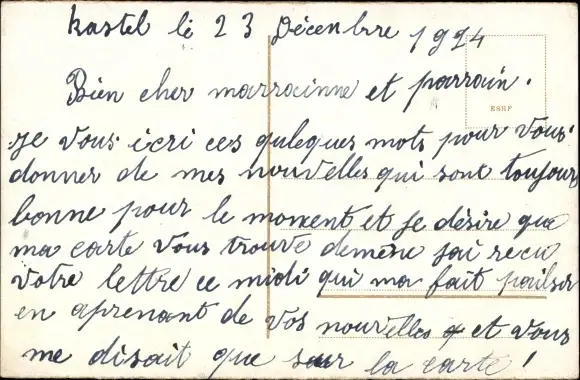 Kastel le 23 Décembre 1924
Bien cher marrainne et parrain.
ESRF
je vous écri ces quleques mots pour vous
donner de mes nouvelles qui sont toujours
bonne pour le moment et je désire que
ma carte vous trouve demème jai recu
votre lettre ce midi qui ma fait plaisir
en aprenant de vos nouvelles et vous
me disait que sur la carte !